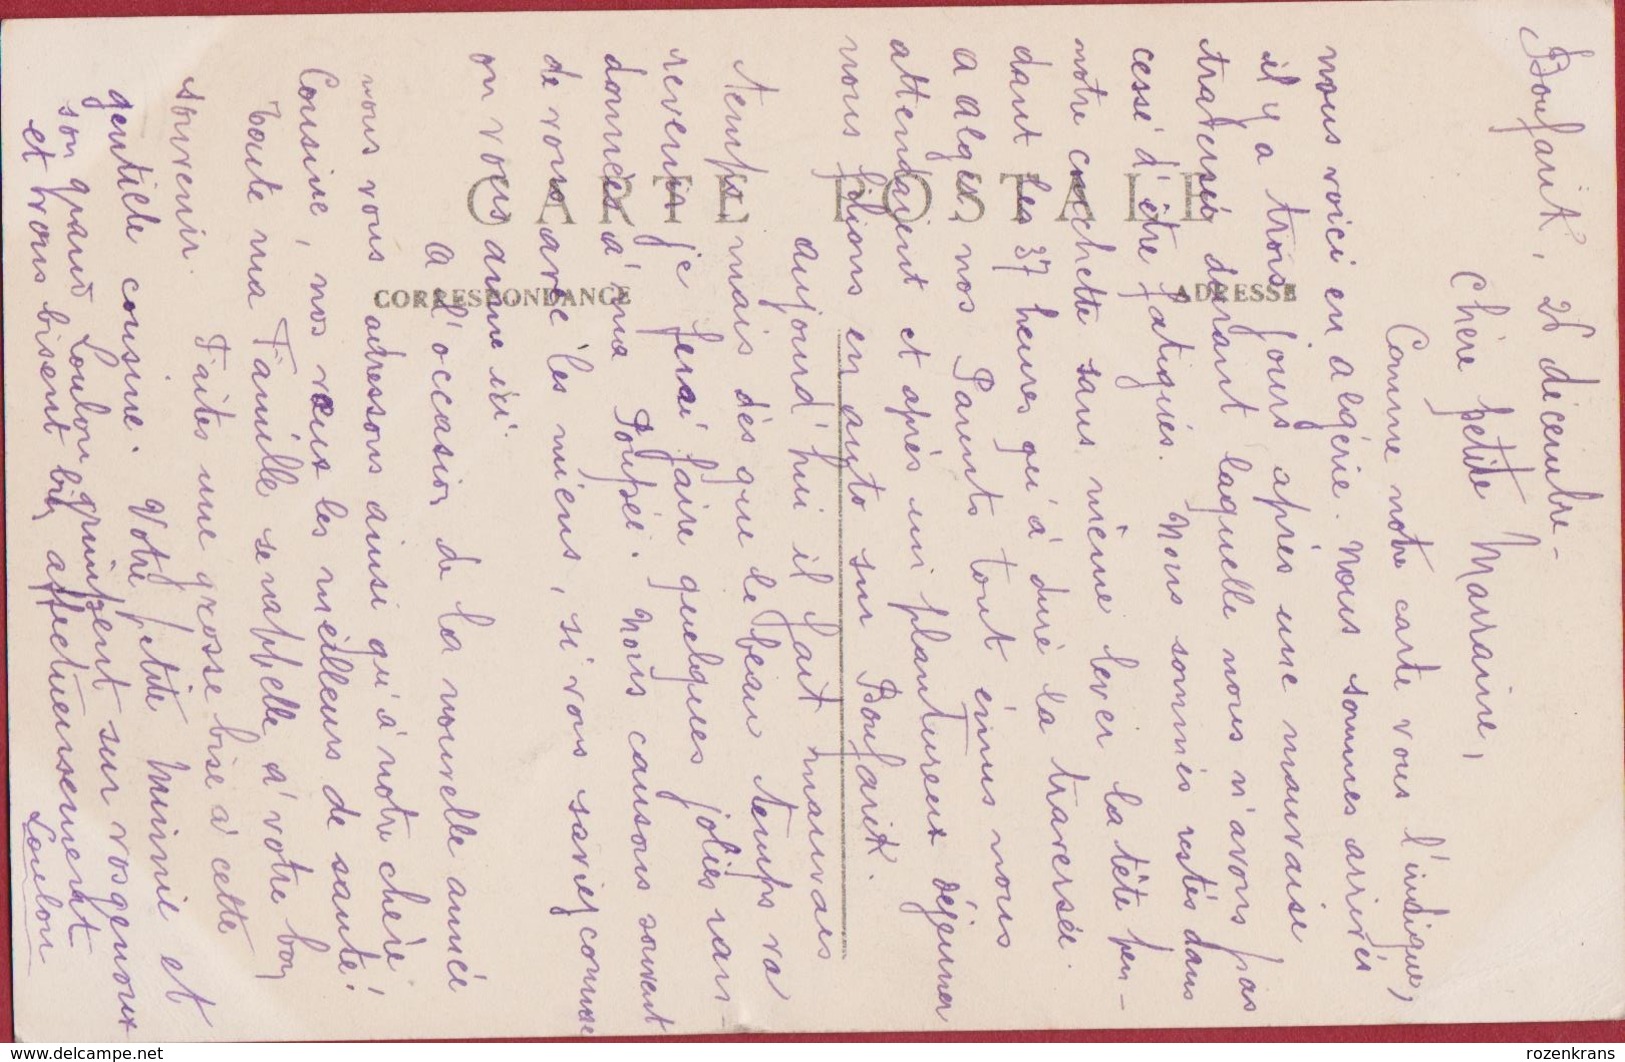 Boufarik, 26 décembre -
Chère petite Marraine,
Comme notre carte vous l'indique,
nous voici en Algérie. Nous sommes arrivés
il y a trois jours après une mauvaise
traversée durant laquelle nous n'avons pas
cessé d'être fatigués. Nous sommes restés dans
notre couchette sans même lever la tête pen-
dant les 37 heures qu'a duré la traversée.
A Alger nos Parents tout émus nous
attendaient et après un plantureux déjeuner
nous filions en auto sur Boufarik.
Aujourd'hui il fait mauvais
temps mais dès que le beau temps va
revenir je ferai faire quelques jolies ran-
données à ma Poupée. Nous causons souvent
de vous avec les miens, si vous saviez comme
on vous aime ici.
A l'occasion de la nouvelle année
nous vous adressons ainsi qu'à notre chère
Cousine, nos vœux les meilleurs de santé!
Toute ma Famille se rappelle à votre bon
souvenir.
Faites une grosse bise à cette
gentille cousine. Votre petite Mimie et
son grand Loulou grimpent sur vos genoux
et vous bisent bien affectueusement
Loulou
CARTE POSTALE
CORRESPONDANCE
ADRESSE
www.delcampe.net
rozenkrans